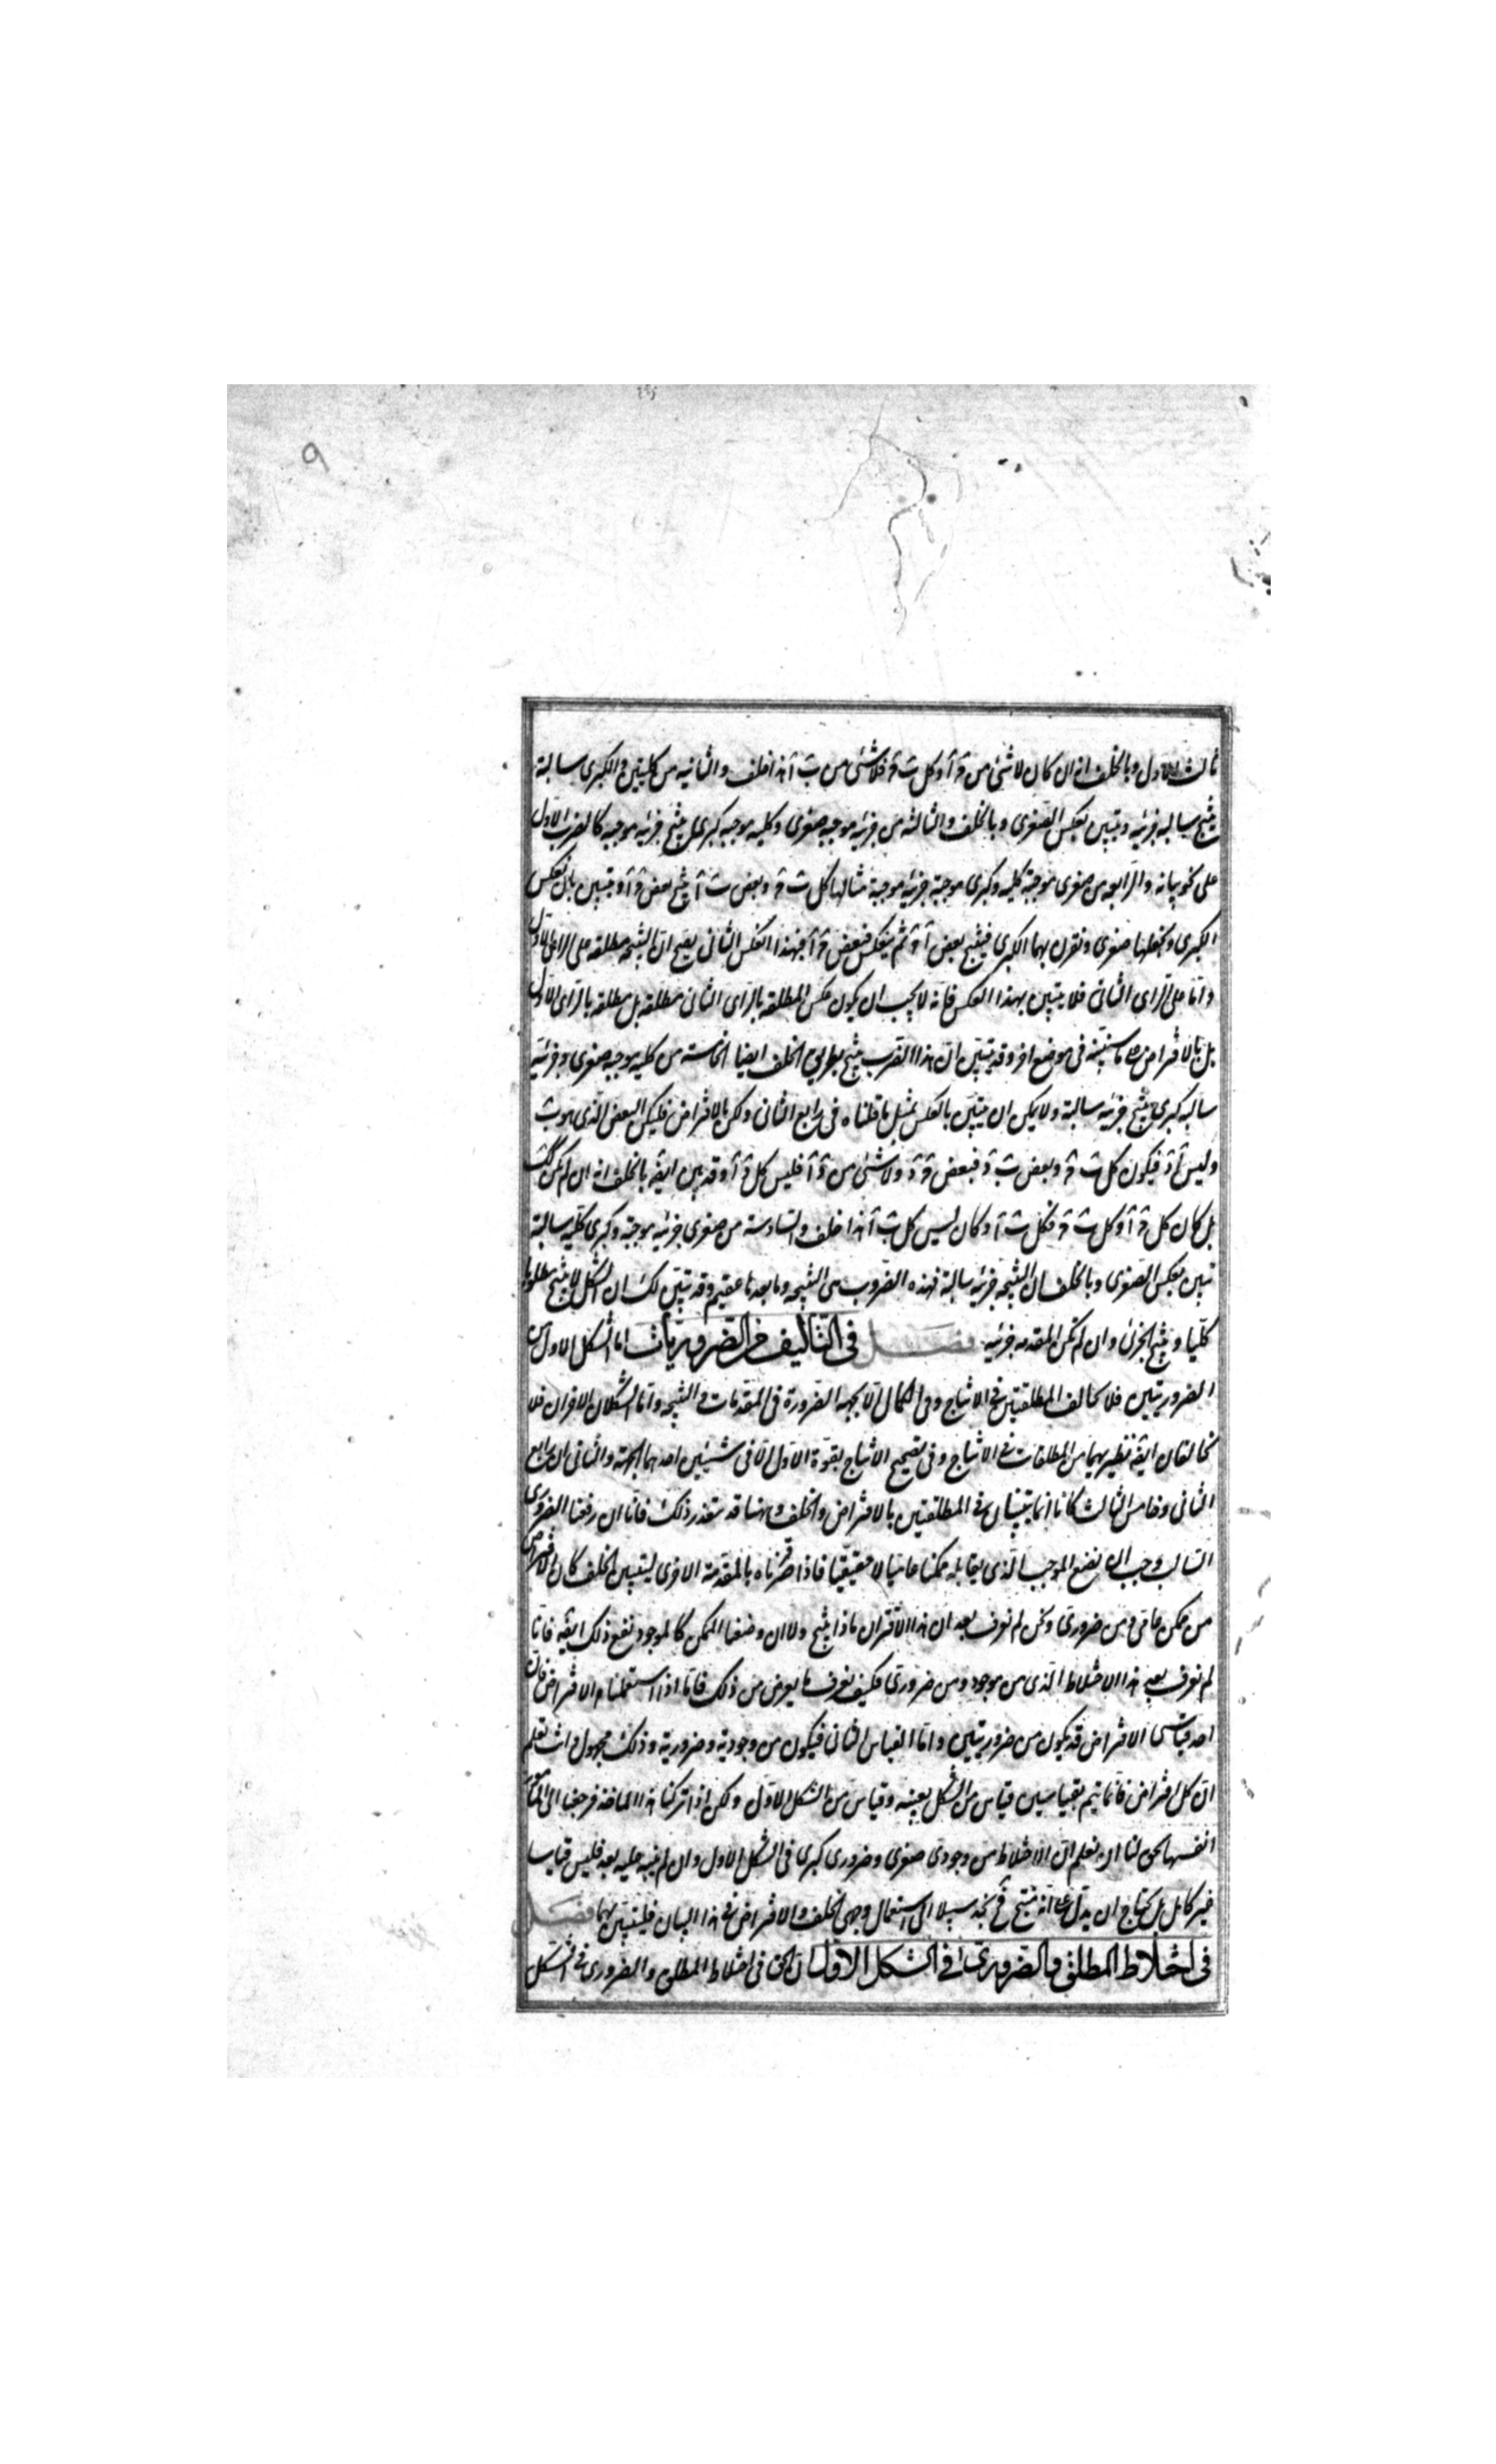 ٩
ثالث الاول وبالخلف انه ان كان لا شئ من ج آ وكل ب ج فلا شئ من ب آ هذا خلف والثانية من كليتين والكبرى سالبة
ينتج سالبه جزئيه ويتبين بعكس الصغرى وبالخلف والثالثه من جزئيه موجبه صغرى وكليه موجبه كبرى ينتج جزئيه موجبه كالضرب الاول
على نحو بيانه والرابعه من صغرى موجبة كليه وكبرى موجبة جزئيه موجبة مثالها كل ب ج وبعض ب آ ينتج بعض ج آ ويتبين بان نعكس
الكبرى ونجعلها صغرى ونقرن بهما الكبرى فينتج بعض آ ج ثم ينعكس فبعض ج آ فبهذا العكس الثانى يصح ان النتيجه مطلقه على الراى الاول
واما على الراى الثانى فلا يتبين بهذا العكس فانه لا يجب ان يكون عكس المطلقه بالراى الثانى مطلقه بل مطلقه بالراى الاول
بل بالافتراض على ما سنبينه فى موضع اخر وقد تبين ان هذا الضرب ينتج بطريق الخلف ايضا الخامسة من كليه موجبه صغرى وجزئيه
سالبه كبرى ينتج جزئيه سالبة ولا يمكن ان يتبين بالعكس بمثل ما قلناه فى رابع الثانى ولكن بالافتراض فليكن البعض الذى هو ب
وليس آ د فيكون كل ب ج وبعض ب د فبعض ج د ولا شئ من د آ فليس كل ج آ وقد يبين ايضا بالخلف انه ان لم يكن كذلك
بل كان كل ج آ وكل ب ج فكل ب آ وكان ليس كل ب آ هذا خلف والسادسة من صغرى جزئيه موجبة وكبرى كليه سالبة
تبين بعكس الصغرى وبالخلف ان النتيجه جزئيه سالبة فهذه الضروب هى النتيجه وما بعدها عقيم وقد تبين لك ان الشكل لا ينتج مطلوبا
كليا وينتج الجزئى وان لم تكن المقدمه جزئيه فصل فى التاليف من الضروريات اما الشكل الاول من
الضروريتين فلا يخالف المطلقتين فى الانتاج وفى الكمال الا بجهة الضرورة فى المقدمات فى النتيجه واما الشكلان الاخران فلا
يخالفان ايضا نظيريهما من المطلقات فى الانتاج وفى تصحيح الانتاج بقوة الاول الا فى شيئين احدهما الجهة والثانى ان رابع
الثانى وخامس الثالث كانا انما يتبينان فى المطلقتين بالافتراض والخلف وههنا قد يتعذر ذلك فانا ان رفعنا الضرورى
السالب وجب ان نضع الموجب الذى يقابله ممكنا عاميا لا حقيقيا فاذا قرناه بالمقدمة الاخرى ليتبين الخلف كان الاقتران
من ممكن عامى ومن ضرورى ونحن لم نعرف بعد ان هذا الاقتران ماذا ينتج ولا ان وضعنا الممكن كالموجود نفع ذلك ايضا فانا
لم نعرف بعد هذا الاختلاط الذى من موجود ومن ضرورى فكيف نعرف ما يعرض من ذلك فاما اذا استعملنا الافتراض فان
احد قياسى الافتراض قد يكون من ضروريتين واما القياس الثانى فيكون من وجودية وضرورية وذلك مجهول وانت تعلم
ان كل افتراض فانما يتم بقياسين قياس من الشكل بعينه وقياس من الشكل الاول ولكن اذا تركنا هذا الماخذ فرجعنا الى الامور
انفسها يمكن لنا ان نعلم ان الاختلاط من وجودى صغرى وضرورى كبرى فى الشكل الاول وان لم ينبه عليه بعد فليس قياسا
غير كامل بل يحتاج ان يدل على انه منتج فنجد سبيلا الى استعمال وجهى الخلف والافتراض فى هذا البيان فليتبين بهما فصل
فى اختلاط المطلق والضرورى فى الشكل الاول ان الحق فى اختلاط المطلق والضرورى فى الشكل